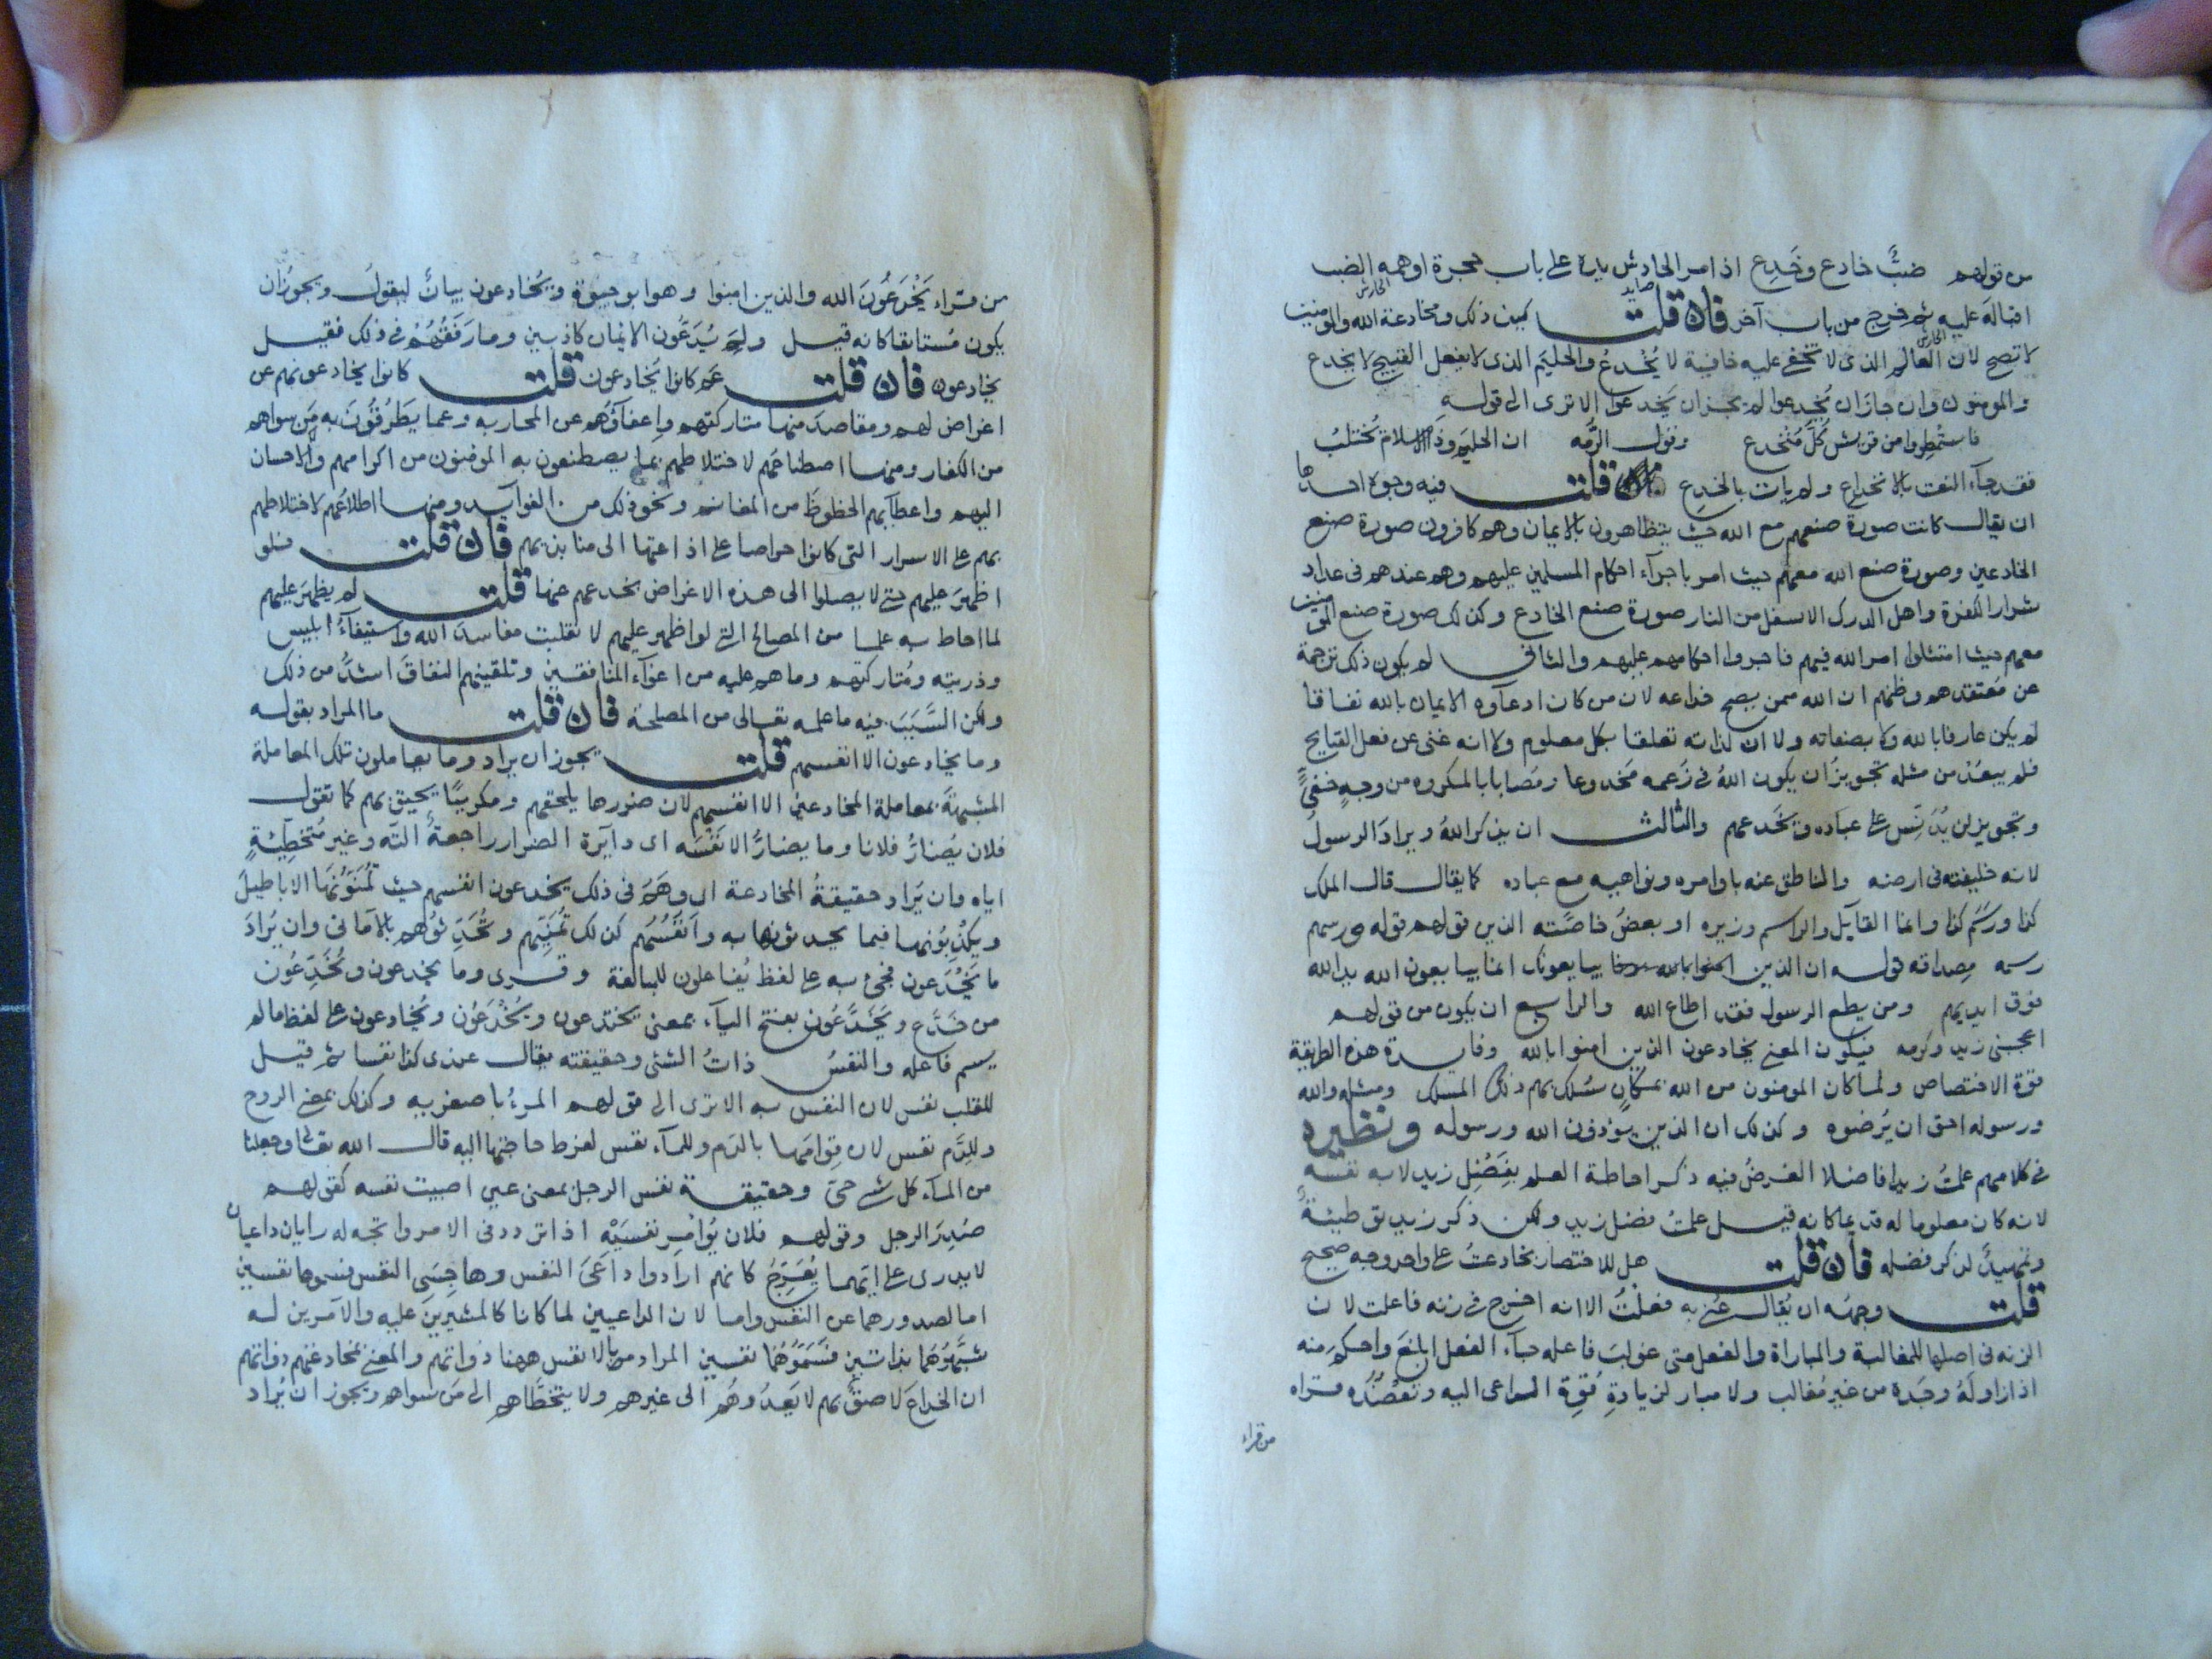 من قولهم ضبٌّ خادع وخَدِع اذا امر الحارش يده على باب حجره اوهمه الضب
اقباله عليه ثم خرج من باب آخر فان قلت كيف ذلك ومخادعة الله والمومنين
لا تصح لان العالم الذى لا تخفى عليه خافية لا يُخْدعُ والحكيم الذى لا يفعل القبيح لا يخدع
والمومنون وان جاز ان يُخدعوا لم يجز ان يَخدعوا الا ترى الى قوله
فاستمطروا من قريش كُلَّ مُنْخدع وقول الرُّمه ان الحليم وذا الاسلام يُختلبُ
فقد جآء النعت بالانخداع ولم يات بالخدع قلت فيه وجوه احدها
ان يقال كانت صورة صنعهم مع الله حيث يتظاهرون بالايمان وهم كافرون صورة صنع
الخادعين وصورة صنع الله معهم حيث امر باجرآء احكام المسلمين عليهم وهم عندهم فى عداد
شرار الكفرة واهل الدرك الاسفل من النار صورة صنع الخادع وكذلك صورة صنع المومنين
معهم حيث امتثلوا امر الله فيهم فاجروا احكامهم عليهم والثانى ان يكون ذلك ترجمة
عن مُعتقدهم وظنهم ان الله ممن يصح خداعه لان من كان ادعآوه الايمان بالله نفاقا
لم يكن عارفا بالله ولا بصفاته ولا ان لذاته تعلقا بكل معلوم ولا انه غنى عن فعل القبايح
فلم يبعُدْ من مثله تجويز ان يكون اللهُ فى زَعمه مَخدوعا ومُصابا بالمكروه من وجهٍ خفىٍّ
وتجويز ان يُدَلّس على عباده ويَخْدعهم والثالث ان يذكر اللهُ ويرادَ الرسول
لانه خليفته فى ارضه والناطق عنه باوامره ونواهيه مع عباده كما يقال قال الملك
كذا ورَسَم كذا وانما القآيل والراسم وزيره او بعضُ خاصَّته الذين قولهم قوله ورسمهم
رسمه مِصداقه قوله ان الذين يبايعونك انما يبايعون الله يد الله
فوق ايديهم ومن يطع الرسول فقد اطاع الله والرابع ان يكون من قولهم
اعجبنى زيد وكرمه فيكون المعنى يخادعون الذين امنوا بالله وفايدة هذه الطريقة
قوة الاختصاص ولما كان المومنون من الله بمكانٍ سُلك بهم ذلك المسلك ومثله والله
ورسوله احق ان يُرضوه وكذلك ان الذين يؤذون الله ورسوله ونظيره
فى كلامهم علمتُ زيدا فاضلا الغرضُ فيه ذكر احاطة العلم بفَضْلِ زيد لا به نفسه
لانه كان معلوما له قديما كانه قيل علمتُ فضل زيد ولكن ذكر زيد توطيئةً
وتمهيدً لذكر فضله فان قلت هل للاختصار بخادعتُ على واحد وجه صحيح
قلت وجهُه ان يُقال عُنى به فعلْتُ الا انه اخرج فى زنه فاعلت لان
الزنه فى اصلها للمغالبة والمباراة والفعل متى غولبَ فاعله جآء الفعل ابلغَ واحكَم منه
اذا زاولَهُ وحَده من غير مُغالب ولا مبار لزيادةِ قُوّة الداعى اليه وتَعْضُدُه قراه
من قراء
من قراء يَخْدَعُونَ الله والذين امنوا وهو ابو حيوة ويُخادعون بيانٌ ليقولُ ويجوز ان
يكون مُستانفا كانه قيل ولِمَ يُدَّعُون الايمان كاذبين وما رَفَقُهُمْ فى ذلك فقيل
يخادعون فان قلت عَمَّ كانوا يُخادعون قلت كانوا يخادعونهم عن
اغراض لهم ومقاصدَ منها متاركتهم واِعفآؤهم عن المحاربه وعما يَطرُقُونَ به مَن سواهم
من الكفار ومنها اصطناعهم لاختلاطهم بما يصطنعون به المومنون من اكرامهم والاحسان
اليهم واعطآيهم الحظوظَ من المغانم ونحو ذلك من الفوآيد ومنها اطلاعُهم لاختلاطهم
بهم على الاسرار التى كانوا حراصا على اذاعتها الى منابذيهم فان قلت فلو
اظهرَ عليهم حتى لا يصلوا الى هذه الاغراض بخدعهم عنها قلت لم يظهرْ عليهم
لما احاط به علما من المصالح التى لو اظهر عليهم لا نقلبت مفاسدَ الله واستبقاءُ ابليس
وذريته ومُتاركتهم وما هم عليه من اغوآء المنافقين وتلقينهم النفاقَ اشدُّ من ذلك
ولكن السَّبَبَ فيه ما علمه تعالى من المصلحة فان قلت ما المراد بقوله
وما يخادعون الا انفسهم قلت يجوز ان يراد وما يعاملون تلك المعاملة
المشبهةَ بمعاملة المخادعين الا انفسهم لان ضررها يلحقهم ومكرها يحيق بهم كما تقول
فلان يُضارُّ فلانا وما يضارُّ الا نَفْسَه اى دآيرة الضرار راجعةٌ اليه وغير مُتَخَطِّئةٍ
اياه وان يَراد حقيقةُ المخادعة اى وهُمْ فى ذلك يخدعون انفسهم حيث تُمَنُّوْنَها الاباطيلَ
ويكْذِبُونها فيما يحدثونها به واَنْفُسُهم كذلك تُمَنّيهم وتُحَدِّثهم بالاَمانى وان يُرادَ
ما يَخْدَعون فجئ به على لفظ يُفاعلون للمبالغة وقرى وما يخدعون ويُخَدِّعُونَ
من خَدَّع ويَخَدَّعُون بفتح اليآء بمعنى يختدعون ويُخْدَعُون ويُخادعون على لفظ ما لم
يسم فاعله والنفسُ ذاتُ الشئى وحقيقته يقال عندى كذا نفسا ثم قيل
للقلب نفس لان النفس به الا ترى الى قولهم المرءُ باصغريه وكذلك بمعنى الروح
وللدَّم نفس لان قِوامَها بالدم وللمآء نفس لفرط حاجتها اليه قال الله تعالى وجعلنا
من المآء كل شى حىّ وحقيقة نفس الرجل بمعنى عين اصيبت نفسه كقولهم
صُدِرَ الرجل وقولهم فلان يُؤامِر نفسَيْهِ اذا تردد فى الامر واتجه له رايان داعيان
لا يدرى على ايّهما يُعَرّجُ كانهم ارادوا داعَيَىِ النفس وهاجِسَى النفس فسموهما نفسين
اما لصدورهما عن النفس واما لان الداعيين لما كانا كالمشيرينَ عليه والآمرين له
شبَّهوُهُمَا بذاتين فسَمَّوْهُمَا نفسين المراد بالانفس ههنا ذواتهم والمعنى بمخادعتهم ذواتهم
ان الخداعَ لاصقٌ بهم لا يَعدُوهُمْ الى غيرهم ولا يتخطّاهم الى مَن سواهم ويجوز ان يُراد